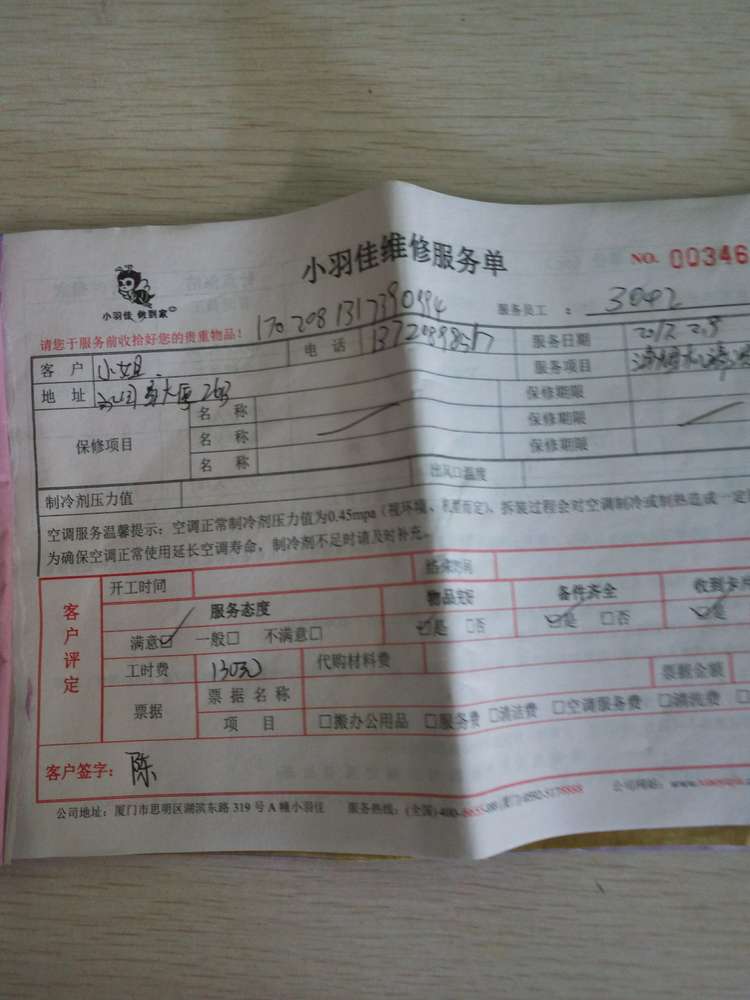 小羽佳维修服务单
NO. 00346
小羽佳 做到家
服务员工 : 3042
请您于服务前收拾好您的贵重物品!
客 户 小姐 电 话 服务日期
地 址 服务项目
保修项目 名 称 保修期限
名 称 保修期限
名 称 保修期限
制冷剂压力值 出风口温度
空调服务温馨提示: 空调正常制冷剂压力值为0.45mpa (视环境、机型而定), 拆装过程会对空调制冷或制热造成一定
为确保空调正常使用延长空调寿命, 制冷剂不足时请及时补充。
客户评定
开工时间 结束时间
服务态度 物品完好 备件齐全 收到卡片
满意☑ 一般□ 不满意□ ☑是 □否 ☑是 □否 ☑是
工时费 130元 代购材料费
票据 票据名称 票据金额
项 目 □搬办公用品 □服务费 □清洁费 □空调服务费 □清洗费
客户签字: 陈
公司地址: 厦门市思明区湖滨东路 319 号 A 幢小羽佳 服务热线: (全国) 公司网站: